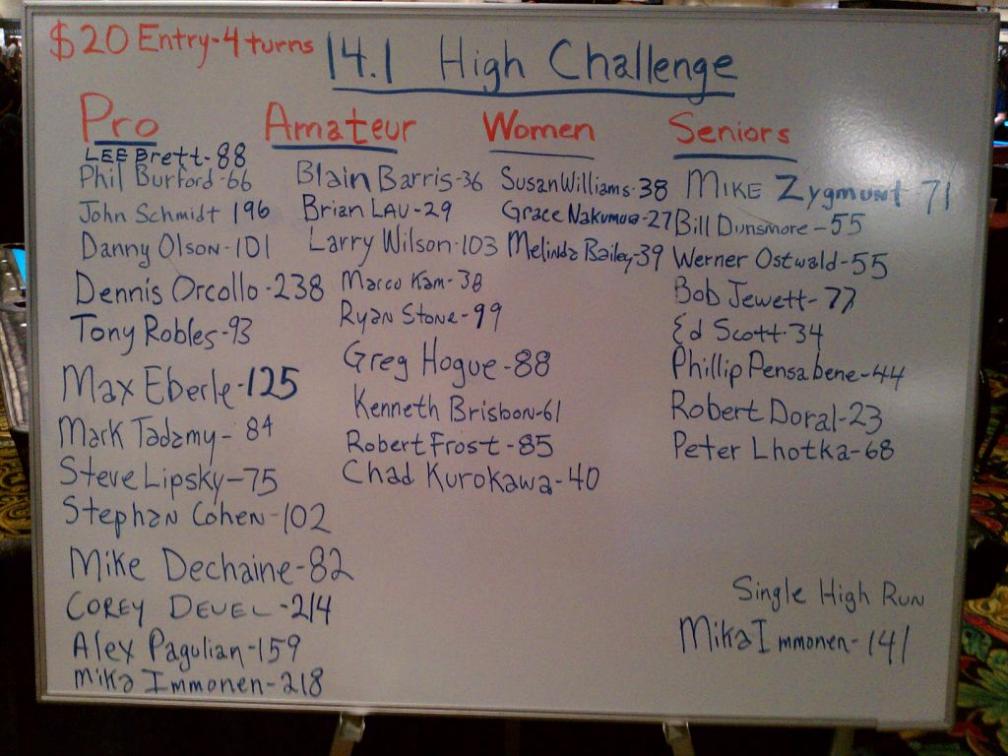 $20 Entry-4 turns
14.1 High Challenge
Pro
LEE Brett-88
Phil Burford-66
John Schmidt 196
Danny Olson-101
Dennis Orcollo-238
Tony Robles-93
Max Eberle-125
Mark Tadamy-84
Steve Lipsky-75
Stephan Cohen-102
Mike Dechaine-82
COREY DEUEL-214
Alex Pagulian-159
Mika Immonen-218
Amateur
Blain Barris-36
Brian LAU-29
Larry Wilson-103
Marco Kam-38
Ryan Stone-99
Greg Hogue-88
Kenneth Brisbon-61
Robert Frost-85
Chad Kurokawa-40
Women
Susan Williams-38
Grace Nakumua-27
Melinda Bailey-39
Seniors
MIKE Zygmunt-71
Bill Dunsmore-55
Werner Ostwald-55
Bob Jewett-77
Ed Scott-34
Phillip Pensabene-44
Robert Doral-23
Peter Lhotka-68
Single High Run
Mika Immonen-141